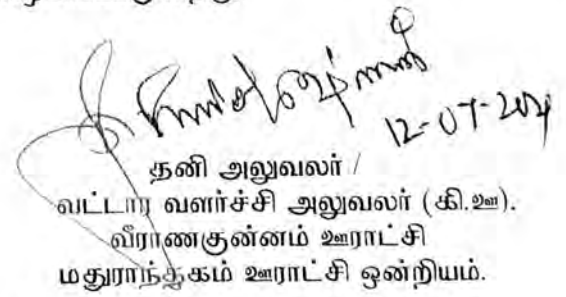 12-07-2021
தனி அலுவலர் /
வட்டார வளர்ச்சி அலுவலர் (கி.ஊ).
வீராணகுன்னம் ஊராட்சி
மதுராந்தகம் ஊராட்சி ஒன்றியம்.